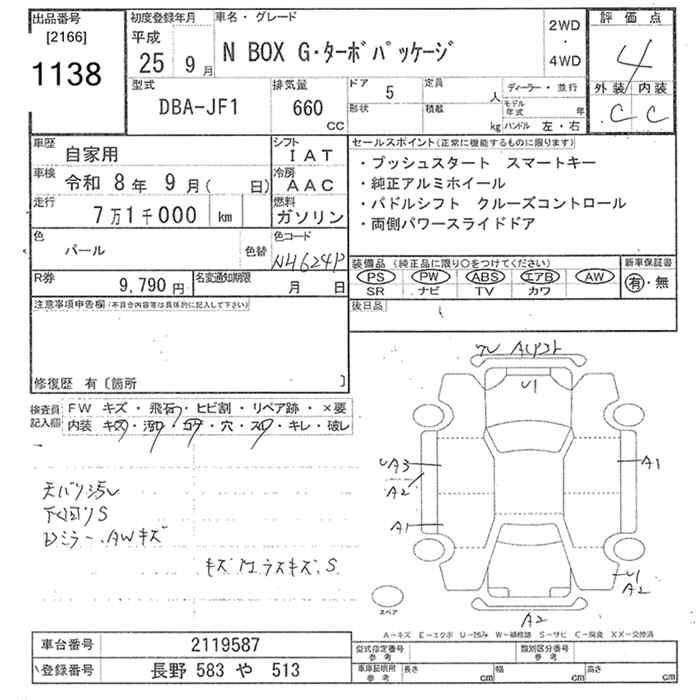 出品番号
[2166]
1138
初度登録年月
平成
25 9 月
車名・グレード
N BOX G・ターボパッケージ
2WD
・
4WD
評価点
4
外装 内装
C C
型式
DBA-JF1
排気量
660
CC
ドア
5
定員
人
形状
積載
kg
ディーラー・並行
モデル年式
年
ハンドル 左・右
車歴
自家用
シフト
IAT
車検
令和 8年 9月( 日)
冷房
AAC
走行
7万1千000 km
燃料
ガソリン
色
パール
色替
色コード
NH624P
R券
9,790 円
名変通知期限
月 日
セールスポイント(正常に機能するものに限ります)
・プッシュスタート スマートキー
・純正アルミホイール
・パドルシフト クルーズコントロール
・両側パワースライドドア
装備品 (純正品に限り○をつけてください)
PS PW ABS エアB AW
SR ナビ TV カワ
新車保証書
有・無
後日品
注意事項申告欄(不具合内容等は具体的に記入して下さい)
修復歴 有〔箇所 〕
検査員記入欄
FW キズ・飛石・ヒビ割・リペア跡・×要
内装 キズ・汚れ・コゲ・穴・スレ・キレ・破レ
下回りS
ミラー、AWキズ
U1
A3
A2
A1
A1
U1
A2
A2
スペア
A-キズ E-エクボ U-凹み W-補修跡 S-サビ C-腐食 XX-交換済
車台番号
2119587
登録番号
長野 583 や 513
型式指定番号
参考
類別区分番号
参考
車庫証明用
参考
長さ cm 幅 cm 高さ cm